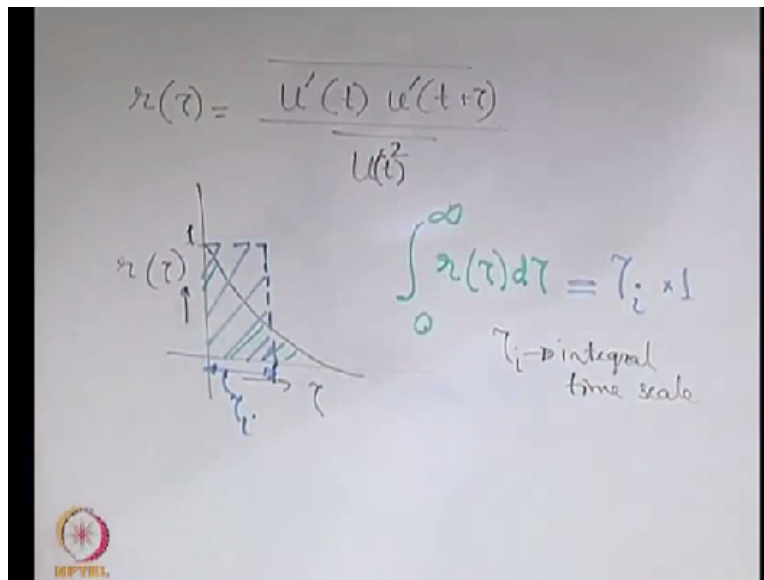 r(τ) = u'(t) u'(t+τ)
u(t)²
1
r(τ)
τ
τi
∫ r(τ)dτ = τi × 1
∞
0
τi → integral
time scale
NPTEL